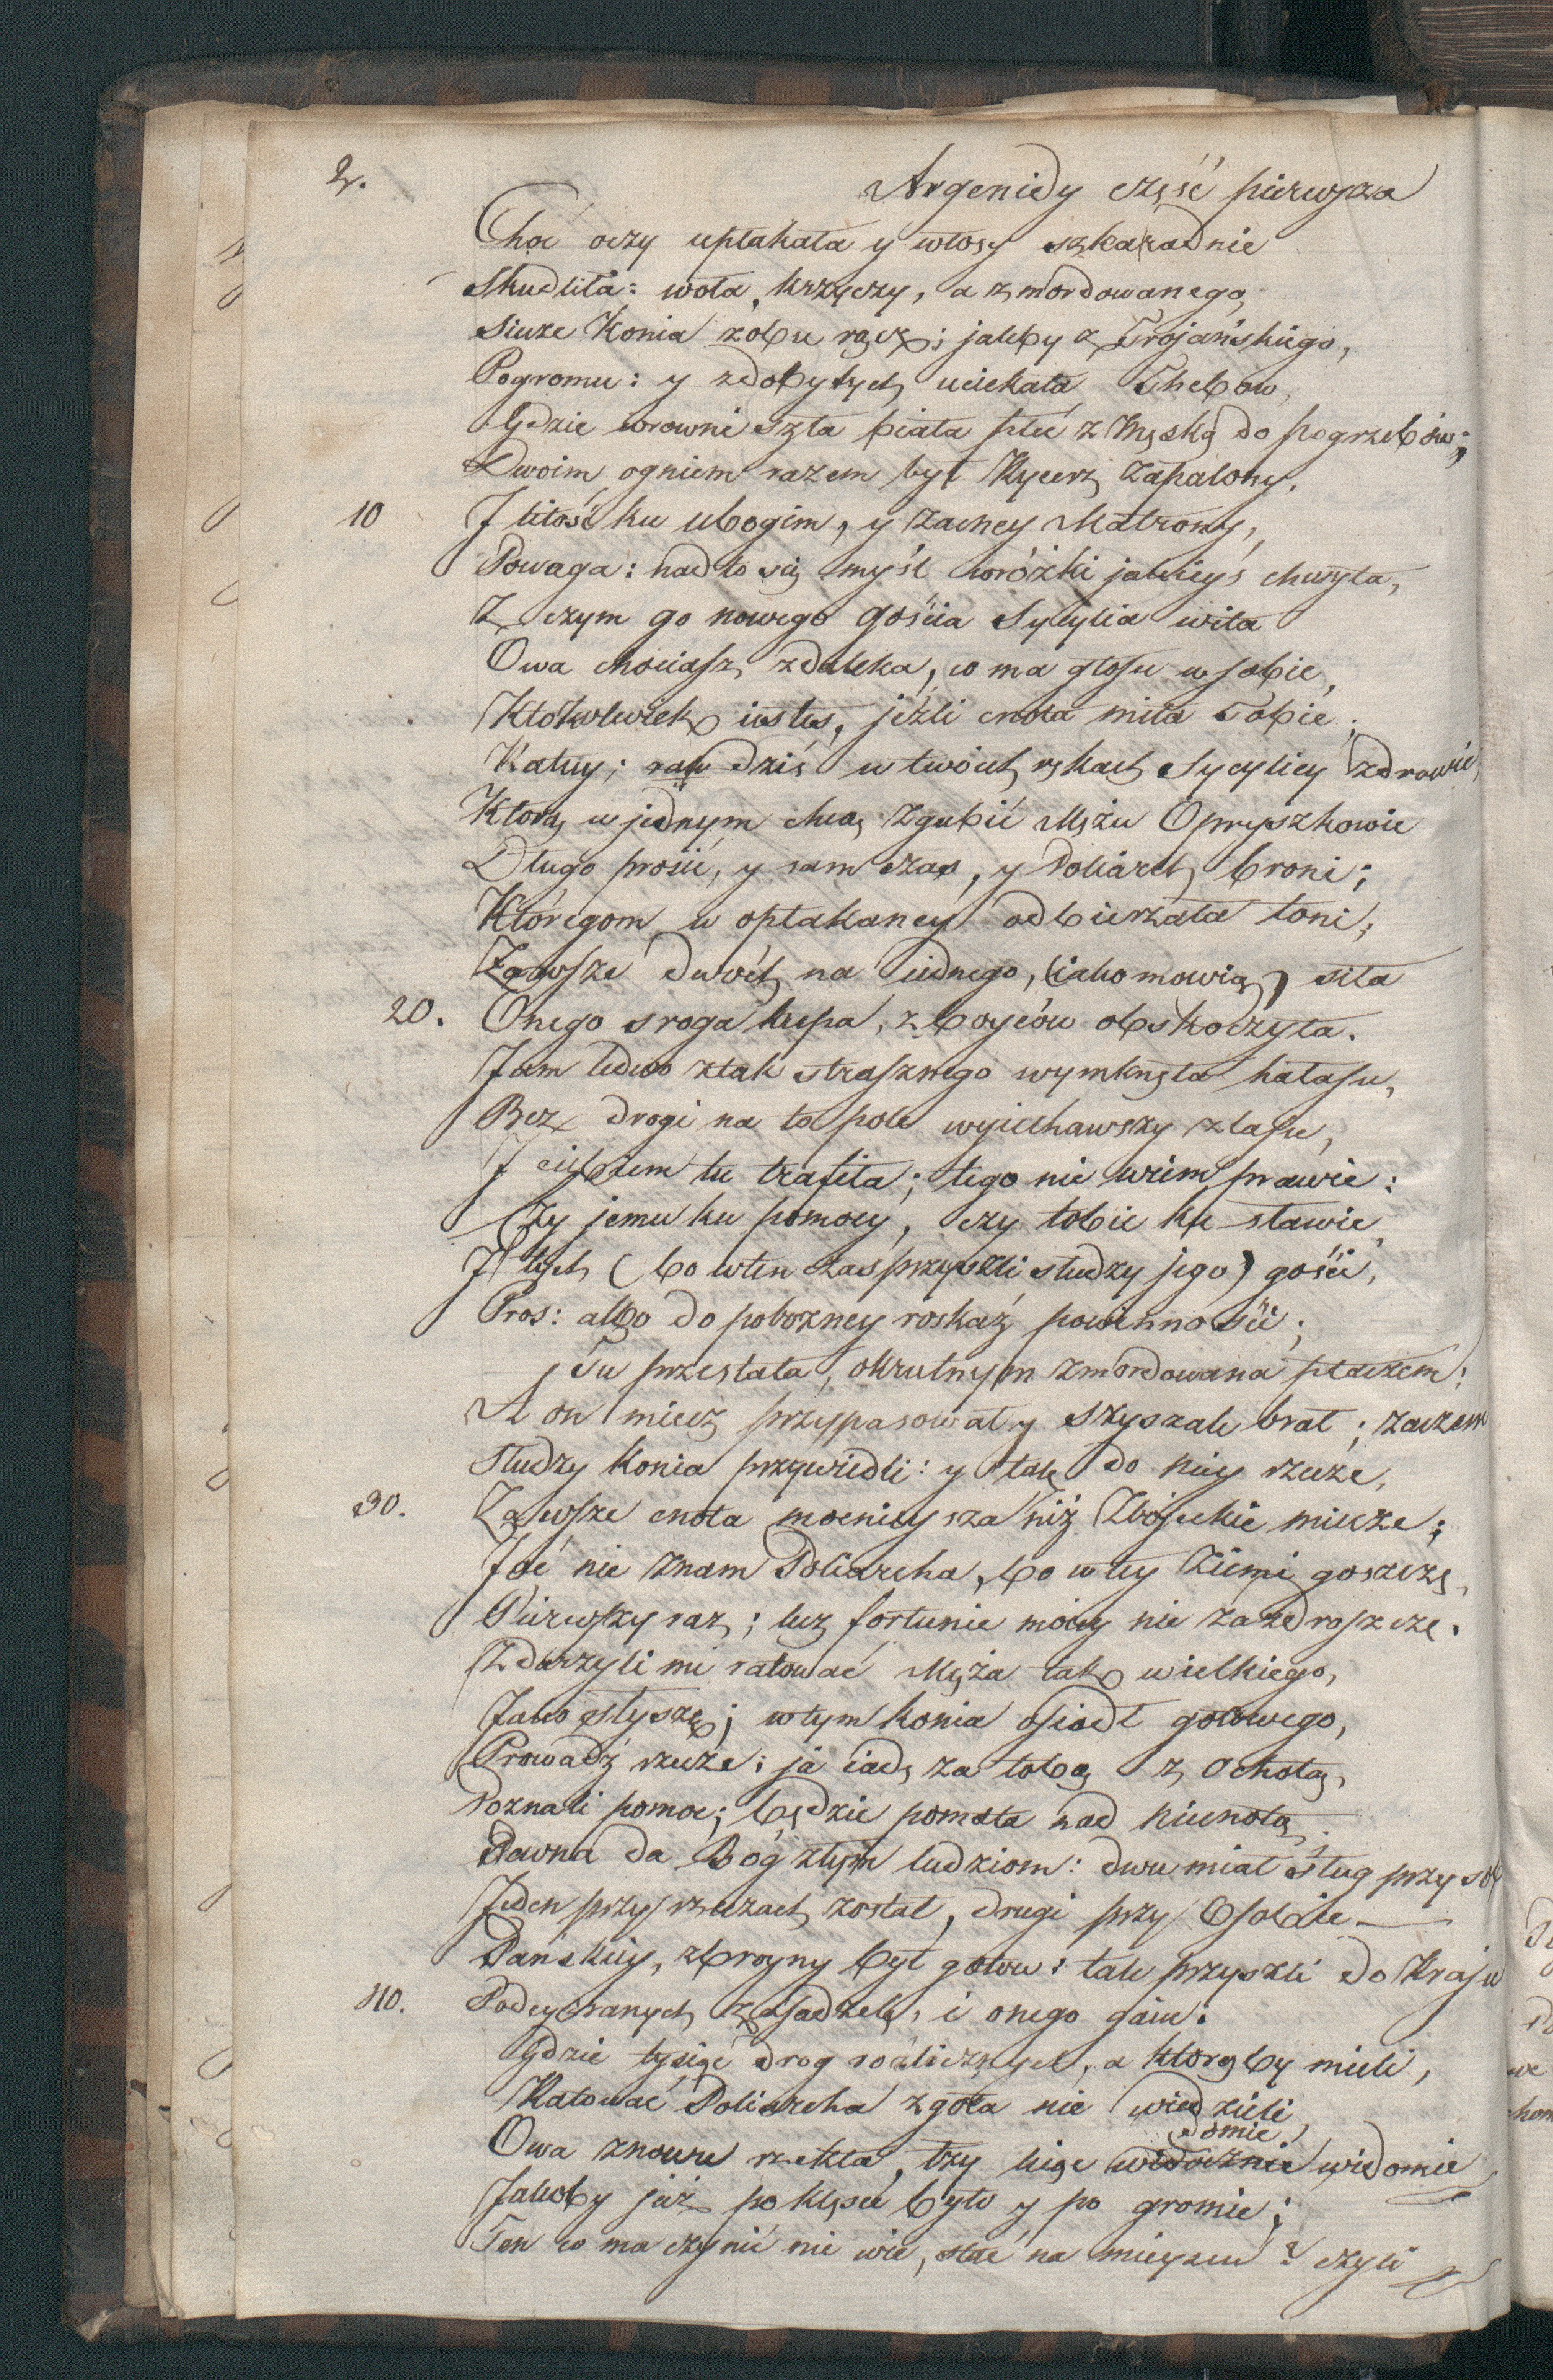 2.
Argenidy część pierwsza
Choć oczy upłakała y włosy szkaradnie
Skudliła: woła, krzyczy, a zmordowanego,
Siecze Konia zobu rącz; jakby z Trojańskiego,
Pogromu: y zdobytych uciekała Thebow,
Gdzie wrowni szła biała płeć z Męską do pogrzebów;
Dwoim ogniem razem był Rycerz zapalony,
10 J litość ku ubogim, y zacney Matrony,
Powaga: nadto się myśl wróżki jakieyś chwyta,
Z czym go nowego gościa Sycylia wita
Owa chociasz zdaleka, co ma głosu w sobie,
Ktokolwiek iestes, jeźli cnota miła Tobie;
Ratuy; dziś w twoich rękach Sycyliey zdrowie,
Ktorą w jednym chcą zgubić Mężu Opryszkowie
Długo prosić, y sam czas, y Poliarch broni;
Któregom w opłakaney odbierzała toni;
Zawsze dwóch na iednego, (iako mowią) siła
20. Onego sroga kupa, zboyców obskoczyła.
Jam ledwo ztak strasznego wymknęła hałasu,
Bez drogi na to pole wyiechawszy zlasu,
J ciebiem tu trafiła; tego nie wiem prawie:
Czy jemu ku pomocy, czy tobie ku sławie,
J tych (bo wten czas przyszli słudzy jego) gości,
Pros: albo do pobozney roskaż powinności;
Tu przestała, okrutnym zmordowana płaczem:
A on miecz przypasował y szyszak brał; zaczem
Słudzy konia przywiedli: y tak do niey rzecze,
30. Zawsze cnota mocnieysza niż Zbójeckie miecze;
Joć nie znam Poliarcha, bo w tey ziemi goszczę,
Pierwszy raz; lecz fortunie moiey nie zazdroszczę.
Zdarzyli mi ratować Męża tak wielkiego,
Jako słyszę; wtym konia osiodł gotowego,
Prowadź rzecze: ja iadę za tobą z ochotą,
Poznali pomoc; będzie pomsta nad niecnotą
Pewna da Bóg złym ludziom: dwu miał sług przy sob
Jeden przy rzeczach został, drugi przy Osobie
Pańskiey, zbroyny był gotow: tak przyszli do Kraju
40. Podeyzranych zasadzek, i onego gaiu.
Gdzie tysiąc drog rozlicznych, a ktorąby mieli,
Ratować Poliarcha zgoła nie wiedzieli
Owa znowu rzekła, łzy leiąc widocznie widomie
domie,
Jakoby już po klęsce było y po gromie;
Ten co ma czynić nie wie, stać na mieyscu? czyli